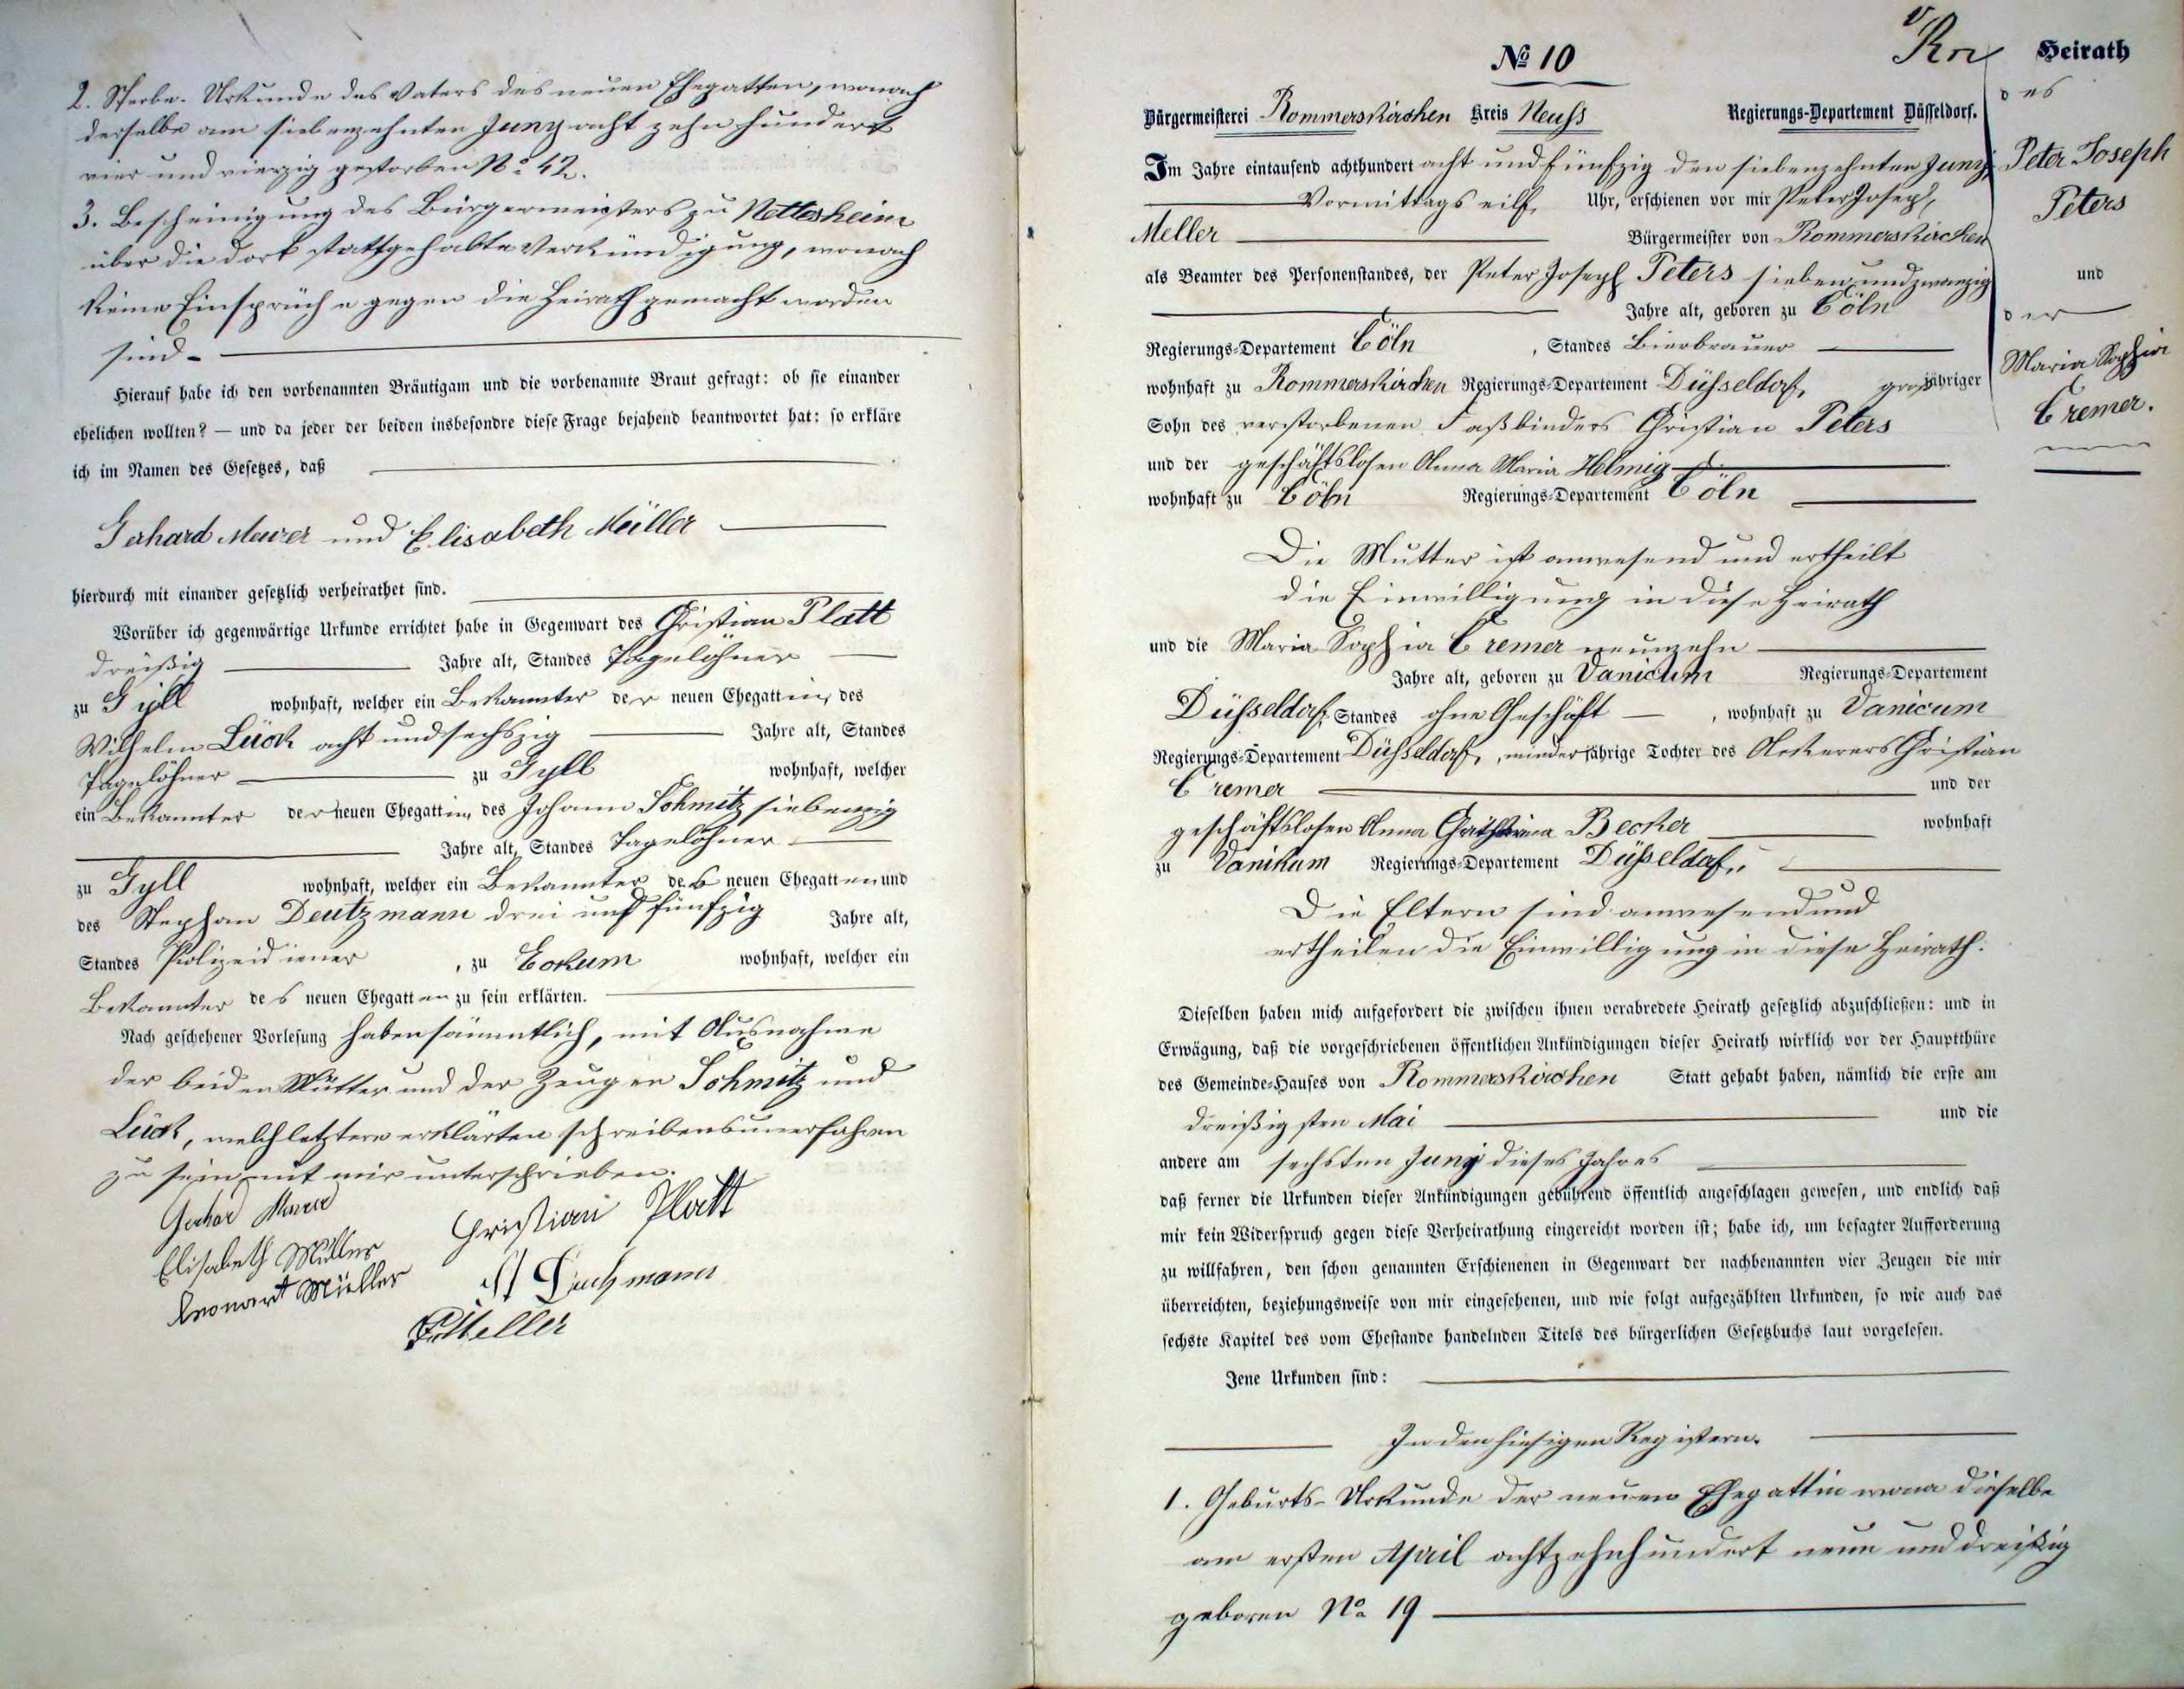 2. Sterbe-Urkunde des Vaters des neuen Ehegatten, wonach
derselbe am siebenzehnten Juny acht zehn hundert
vier und vierzig gestorben No 42.
3. Bescheinigung des Bürgermeisters zu Nettesheim
über die dort stattgehabte Verkündigung, wonach
keine Einsprüche gegen die Heirath gemacht worden
sind.
Hierauf habe ich den vorbenannten Bräutigam und die vorbenannte Braut gefragt: ob sie einander
ehelichen wollten? — und da jeder der beiden insbesondre diese Frage bejahend beantwortet hat: so erkläre
ich im Namen des Gesetzes, daß
Gerhard Meurer und Elisabeth Müller
hierdurch mit einander gesetzlich verheirathet sind.
Worüber ich gegenwärtige Urkunde errichtet habe in Gegenwart des Christian Platt
dreißig Jahre alt, Standes Tagelöhner
zu Gyll wohnhaft, welcher ein Bekannter der neuen Ehegattin, des
Wilhelm Lück acht und sechszig Jahre alt, Standes
Tagelöhner zu Gyll wohnhaft, welcher
ein Bekannter der neuen Ehegattin, des Johann Schmitz siebenzig
Jahre alt, Standes Tagelöhner
zu Gyll wohnhaft, welcher ein Bekannter des neuen Ehegatten und
des Stephan Deutzmann drei und fünfzig Jahre alt,
Standes Polizeidiener, zu Eckum wohnhaft, welcher ein
Bekannter des neuen Ehegatten zu sein erklärten.
Nach geschehener Vorlesung haben sämmtlich, mit Ausnahme
der beiden Mütter und der Zeugen Schmitz und
Lück, welch letztere erklärten schreibensunerfahren
zu sein, mit mir unterschrieben.
Gerhard Meurer
Christian Platt
Elisabeth Müller
Leonart Müller
St Deutzmann
PJMeller
No 10
Heirath
des
Peter Joseph
Peters
und
der
Maria Sophia
Cremer.
Bürgermeisterei Rommerskirchen Kreis Neuss Regierungs-Departement Düsseldorf.
Im Jahre eintausend achthundert acht und fünfzig den siebenzehnten Juny
Vormittags eilf Uhr, erschienen vor mir Peter Joseph
Meller Bürgermeister von Rommerskirchen
als Beamter des Personenstandes, der Peter Joseph Peters sieben und zwanzig
Jahre alt, geboren zu Cöln
Regierungs-Departement Cöln, Standes Bierbrauer
wohnhaft zu Rommerskirchen Regierungs-Departement Düsseldorf, großjähriger
Sohn des verstorbenen Faßbinders Christian Peters
und der geschäftslosen Anna Maria Helmig
wohnhaft zu Cöln Regierungs-Departement Cöln
Die Mutter ist anwesend und ertheilt
die Einwilligung in diese Heirath
und die Maria Sophia Cremer neunzehn
Jahre alt, geboren zu Vanicum Regierungs-Departement
Düsseldorf, Standes ohne Geschäft, wohnhaft zu Vanicum
Regierungs-Departement Düsseldorf, minderjährige Tochter des Ackerers Christian
Cremer und der
geschäftslosen Anna Catharina Becker wohnhaft
zu Vanikum Regierungs-Departement Düsseldorf.
Die Eltern sind anwesend und
ertheilen die Einwilligung in diese Heirath.
Dieselben haben mich aufgefordert die zwischen ihnen verabredete Heirath gesetzlich abzuschließen: und in
Erwägung, daß die vorgeschriebenen öffentlichen Ankündigungen dieser Heirath wirklich vor der Hauptthüre
des Gemeinde-Hauses von Rommerskirchen Statt gehabt haben, nämlich die erste am
dreißigsten Mai und die
andere am sechsten Juny dieses Jahres
daß ferner die Urkunden dieser Ankündigungen gebührend öffentlich angeschlagen gewesen, und endlich daß
mir kein Widerspruch gegen diese Verheirathung eingereicht worden ist; habe ich, um besagter Aufforderung
zu willfahren, den schon genannten Erschienenen in Gegenwart der nachbenannten vier Zeugen die mir
überreichten, beziehungsweise von mir eingesehenen, und wie folgt aufgezählten Urkunden, so wie auch das
sechste Kapitel des vom Ehestande handelnden Titels des bürgerlichen Gesetzbuchs laut vorgelesen.
Jene Urkunden sind:
In den hiesigen Registern.
1. Geburts-Urkunde der neuen Ehegattin wona dieselbe
am ersten April achtzehnhundert neun und dreißig
geboren No 19